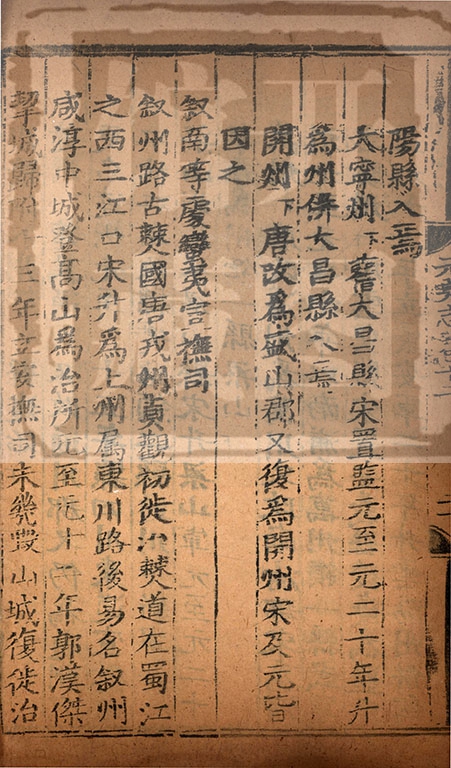 陽縣入焉
大寧州下舊大昌縣宋置監元至元二十年升
為州併大昌縣入焉
開州下唐改為盛山郡又復為開州宋及元皆
因之
叙南等處蠻夷宣撫司
叙州路古僰國唐戎州貞觀初徙治僰道在蜀江
之西三江口宋升為上州属東川路後易名叙州
咸淳中城登高山為治所元至元十二年郭漢傑
挈城歸附十三年立安撫司未幾毀山城復徙治